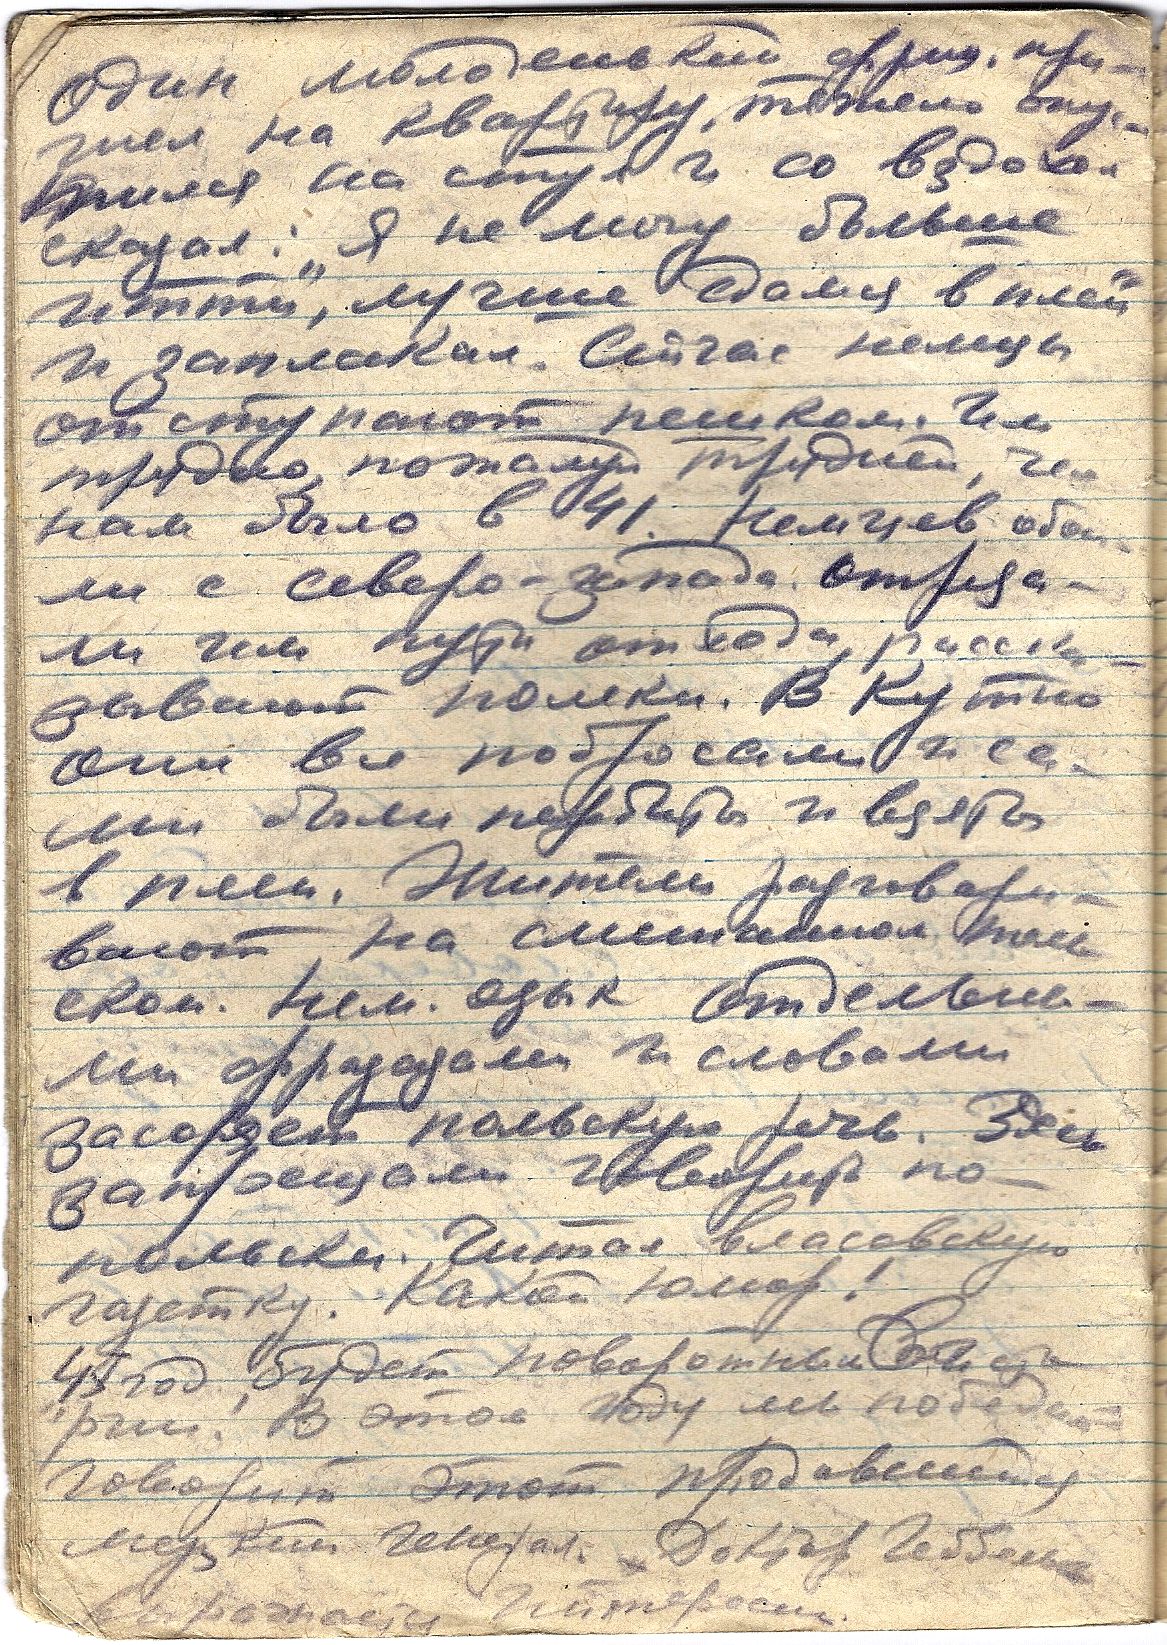 Один молоденький фриц, при-
шел на квартиру, тяжело опу-
стился на стул и со вздохом
сказал: „Я не могу больше
итти", лучше сдамся в плен
и заплакал. Сейчас немцы
отступают пешком. Им
трудно, пожалуй трудней, чем
нам было в 41. Немцев обош-
ли с северо-запада. Отреза-
ли им пути отхода, расска-
зывают поляки. В Кутно
они все побросали и са-
ми были перебиты и взяты
в плен. Жители разговари-
вают на смешанном поль
ском. Нем. язык отдельны-
ми фразами и словами
засоряет польскую речь. Здесь
запрещали говорить по-
польски. Читал власовскую
газетку. Какой юмор!
„45 год будет поворотным в исто
рии". В этом году мы победим
говорит этот продавшийся
мерзкий генерал. Доктор Геббельс